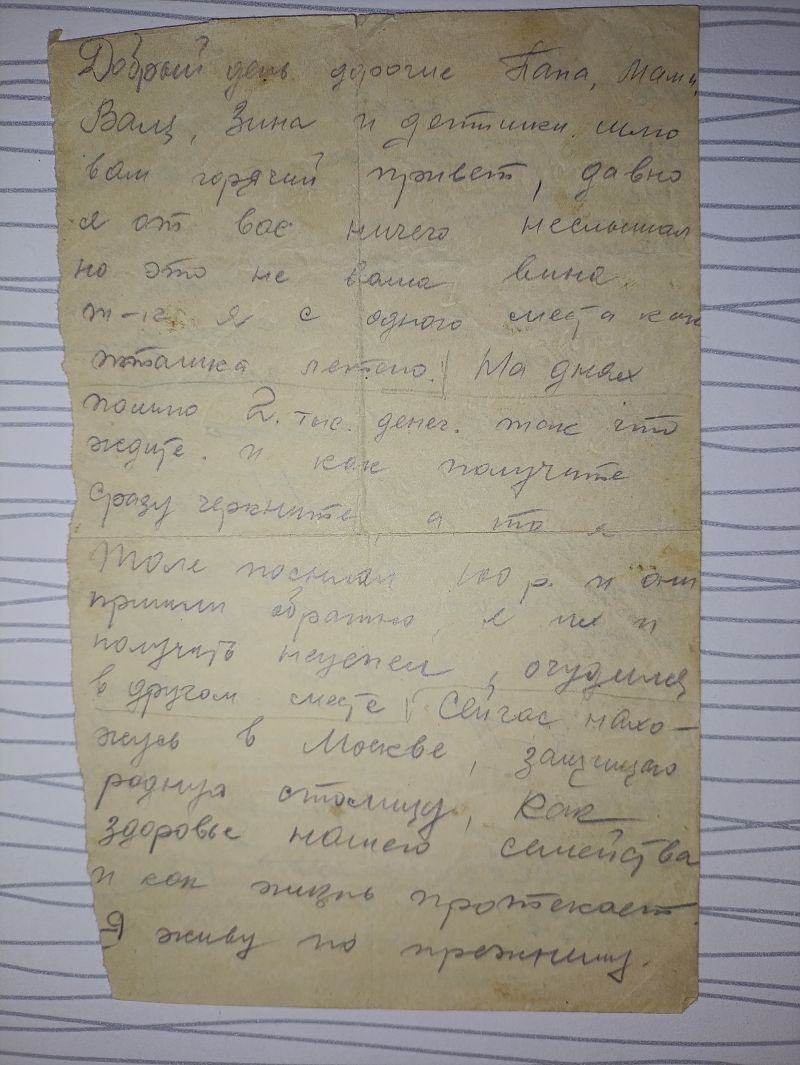 Добрый день дорогие Папа, Мама,
Валя, Зина и детишки шлю
вам горячий привет, давно
я от вас ничего неслышал
но это не ваша вина
т-к я с одного места как
пташка летаю. На днях
пошлю 2. тыс. денег. так что
ждите. и как получите
сразу черкните, а то я
Толе посылал 100 р. и они
пришли обратно, я их и
получать неуспел, очудился
в другом месте Сейчас нахо-
жусь в Москве, защищаю
родную столицу, как
здоровье нашего семейства
и как жизнь протекает
Я живу по прежнему.